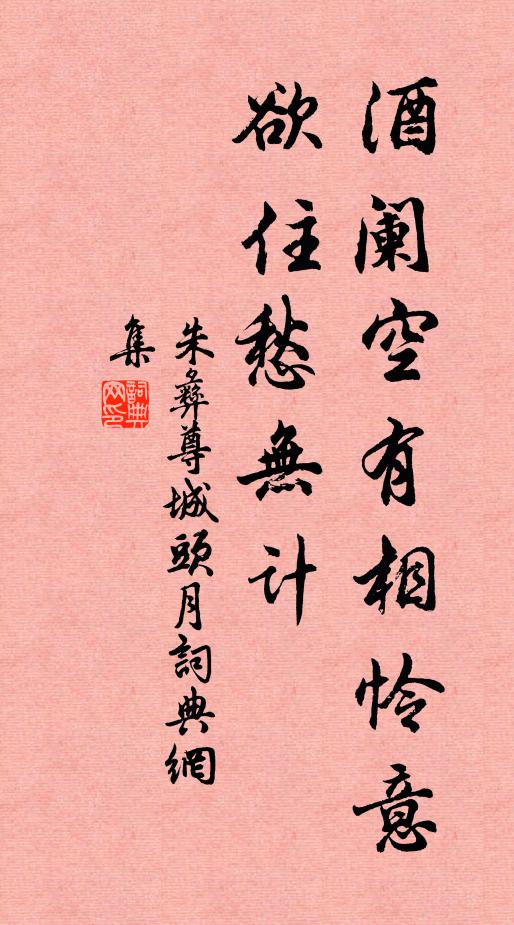 酒阑空有相怜意
欲住愁無计
朱彝尊城頭月詞典網
集
詞典網印